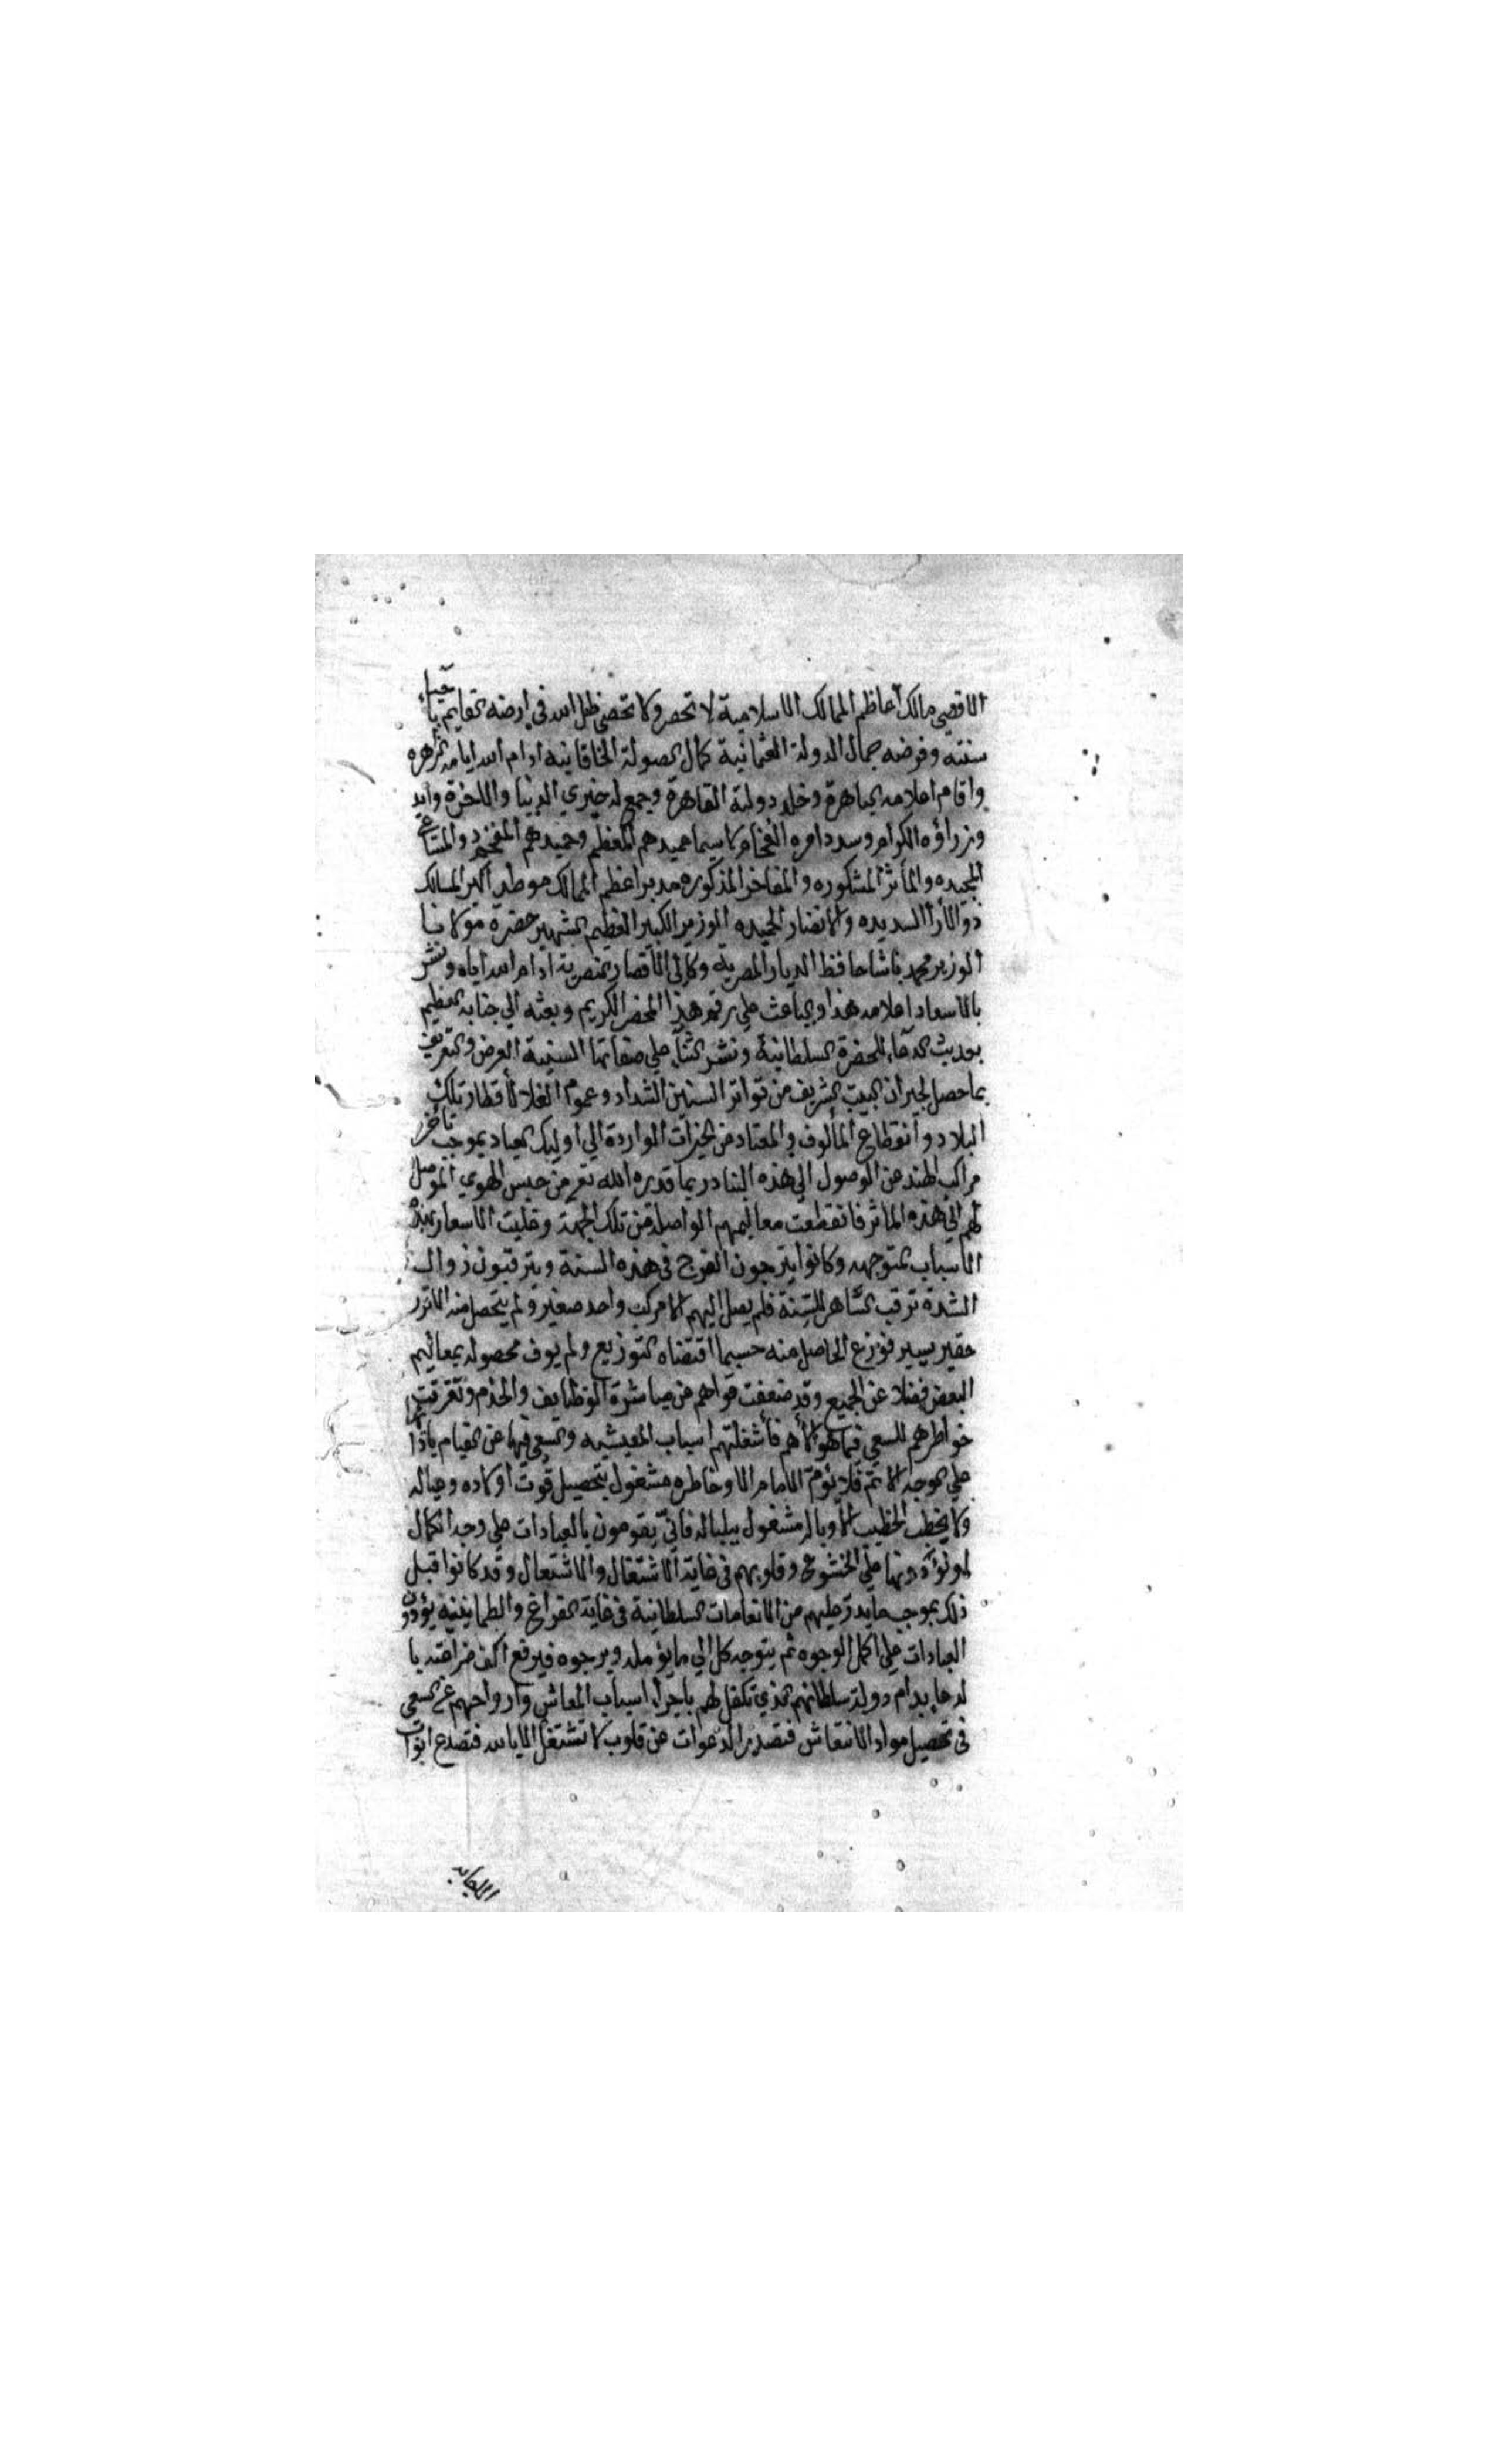 الاقصي مالك اعاظم الممالك الاسلامية لا تحصر ولا تحصي ظل الله في ارضه القايم باحياء
سنته وفرضه جمال الدولة العثمانية كمال الصولة الخاقانيه ادام الله ايامه الزاهره
واقام اعلامه الباهرة وخلد دولته القاهرة وجمع له خيري الدنيا والاخرة وايد
وزراؤه الكرام وسدد امره الفخام لاسيما عميدهم المعظم وحميدهم المفخم ذو المساعي
المجيده والمأثر المشكوره والمفاخر المذكوره مدبر اعظم الممالك موطد اكبر المسالك
ذو الأرا السديده والانضار الحميده الوزير الكبير العظيم الشهير حضرة مولانا
الوزير محمد باشا حافظ الديار المصرية وكافل الأقصار ادام الله اياه ونشر
بالاسعاد اعلامه هذا والباعث علي رقم هذا المحضر الكريم وبعثه الي جنابه العظيم
بعد بث الدعاء للحضرة السلطانية ونشر الثناء علي صفاتها السنية العرض والتعريف
بما حصل لجيران البيت الشريف من تواتر السنين الشداد وعموم الغلا لأقطار تلك
البلاد وانقطاع المألوف والمعتاد من الخيرات الواردة الي اوليك العباد بموجب تاخر
مراكب الهند عن الوصول الي هذه البنادر بما قدره الله تع من حبس الهوي الموصل
لهم الي هذه الماثر فانقطعت معاليمهم الواصلة من تلك الجهة وغليت الاسعار بهذه
الاسباب المتوجهه وكانوا يترجون الفرج في هذه السنة ويترقبون زوال
الشدة ترقب الساهر للسنة فلم يصل اليهم الا مركب واحد صغير ولم يتحصل منه الا نزر
حقير يسير فوزع الحاصل منه حسبما اقتضاه التوزيع ولم يوف محصوله بمعاليم
البعض فضلا عن الجميع وقد ضعفت قواهم من مباشرة الوظايف والخدم وتفرقت
خواطرهم للسعي فيما هو الأهم فأشغلتهم اسباب المعيشيه والسعي فيها عن القيام باداء
علي الوجه الاتم فلا يؤم الامام الا وخاطره مشغول بتحصيل قوت اولاده وعياله
ولا يخطب الخطيب الا وباله مشغول ببلباله فاني يقومون بالعبادات علي وجه الكمال
او يؤدونها علي الخشوع وقلوبهم في غاية الاشتغال والاشتعال وقد كانوا قبل
ذلك بموجب ما يدر عليهم من الانعامات السلطانية في غاية الفراغ والطماينينه يؤدون
العبادات علي اكمل الوجوه ثم يتوجه كل الي ما يؤمله ويرجوه فيرفع اكف ضراعته با
لدعا بدام دولة سلطانهم الذي تكفل لهم باجراء اسباب المعاش وارواحهم عن السعي
في تحصيل مواد الانتعاش فتصدر الدعوات عن قلوب لا تشتغل الا بالله فتصدع ابواب